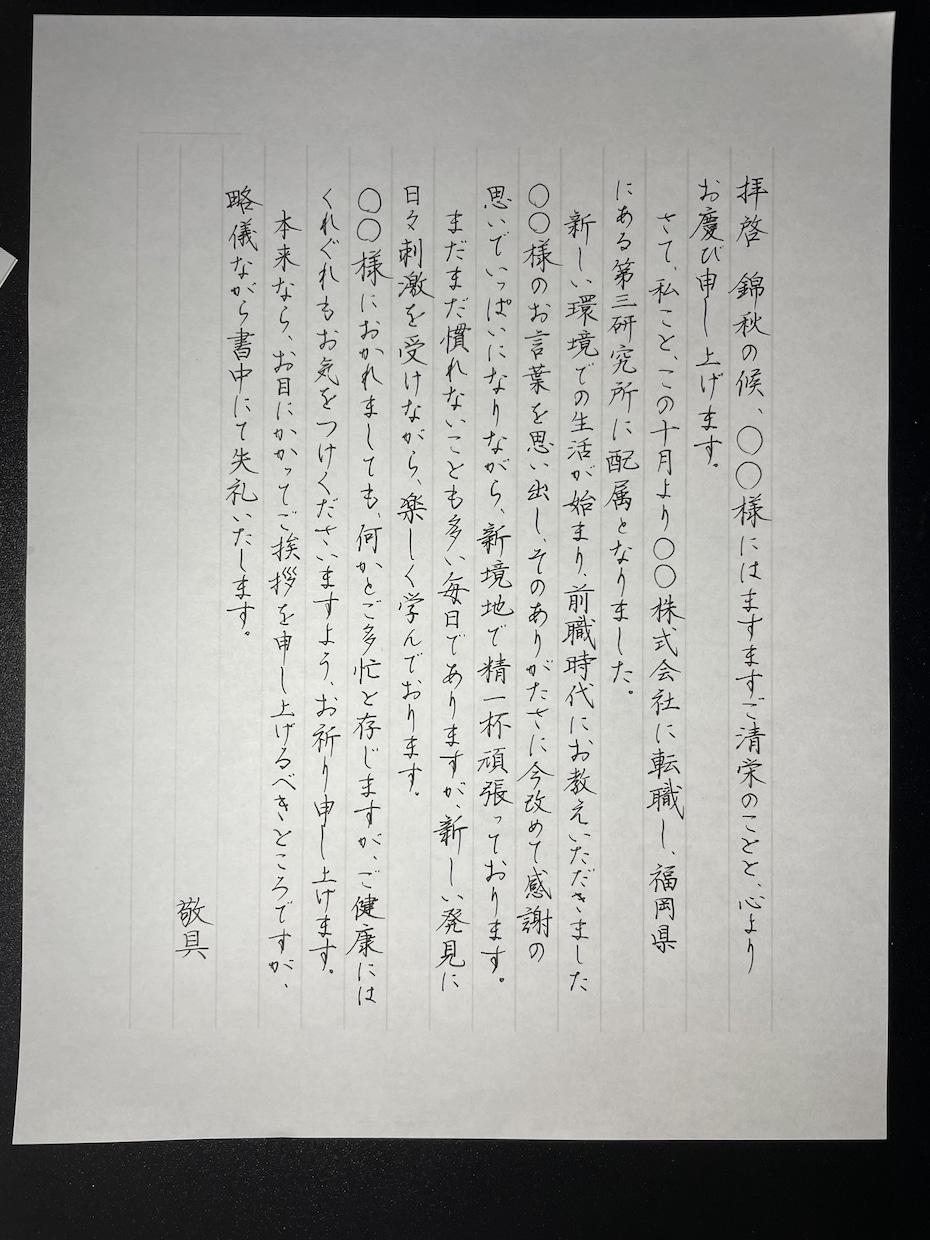 拝啓　錦秋の候、〇〇様にはますますご清栄のことと、心より
お慶び申し上げます。
さて、私こと、この十月より〇〇株式会社に転職し、福岡県
にある第三研究所に配属となりました。
新しい環境での生活が始まり、前職時代にお教えいただきました
〇〇様のお言葉を思い出し、そのありがたさに今改めて感謝の
思いでいっぱいになりながら、新境地で精一杯頑張っております。
まだまだ慣れないことも多い毎日でありますが、新しい発見に
日々刺激を受けながら、楽しく学んでおります。
〇〇様におかれましても、何かとご多忙と存じますが、ご健康には
くれぐれもお気をつけくださいますよう、お祈り申し上げます。
本来なら、お目にかかってご挨拶を申し上げるべきところですが、
略儀ながら書中にて失礼いたします。
敬具